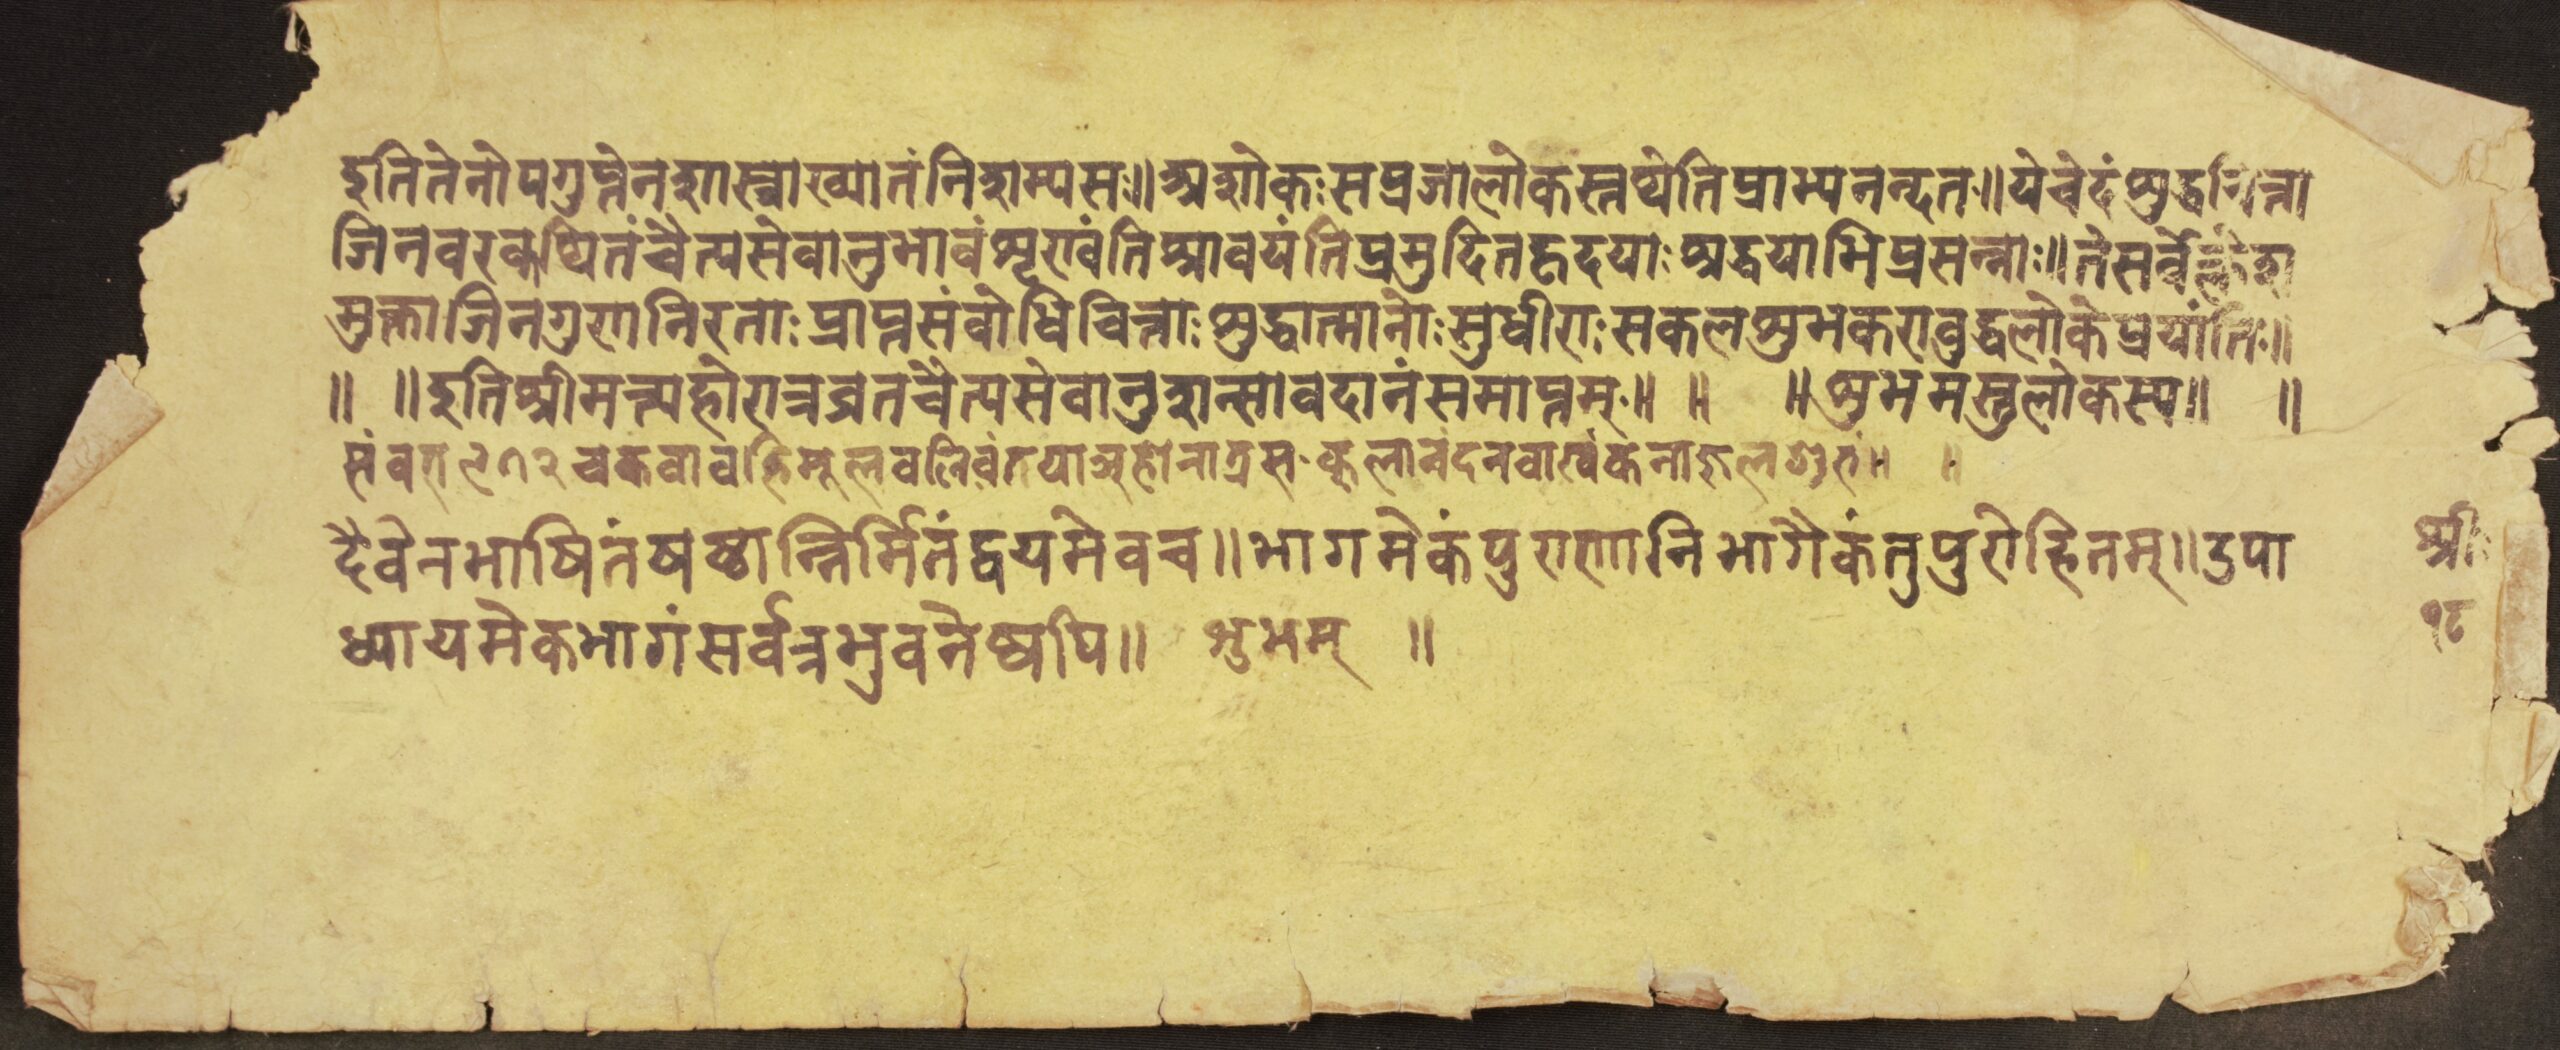 इतितेनोपगुप्तेनशास्त्राख्यातंनिशम्यसः॥अशोकःसप्रजालोकस्तथेतिप्राभ्यनन्दतः॥येचेदंशुद्धचित्ता
जिनवरकथितंचैत्यसेवानुभावंशृण्वंतिश्रावयंतिप्रमुदितहृदयाःश्रद्धयाभिप्रसन्नाः॥तेसर्वेक्लेश
मुक्ताजिनगुणनिरताःप्राप्तसंबोधिचित्ताःशुद्धात्मानोःसुधीराःसकलशुभकराबुद्धलोकेप्रयांतिः॥
॥ ॥इतिश्रीमत्यहोरात्रव्रतचैत्यसेवानुशन्सावदानंसमाप्तम्ः॥ ॥ ॥शुभमस्तुलोकस्य॥ ॥
संवत्
दैवेनभाषितंषष्ठान्निर्मितंद्वयमेवच॥भागमेकंपुराणानिभागैकंतुपुरोहितम्॥उपा
ध्यायमेकभागंसर्वत्रभुवनेष्वपि॥ शुभम् ॥
श्रीः
१८